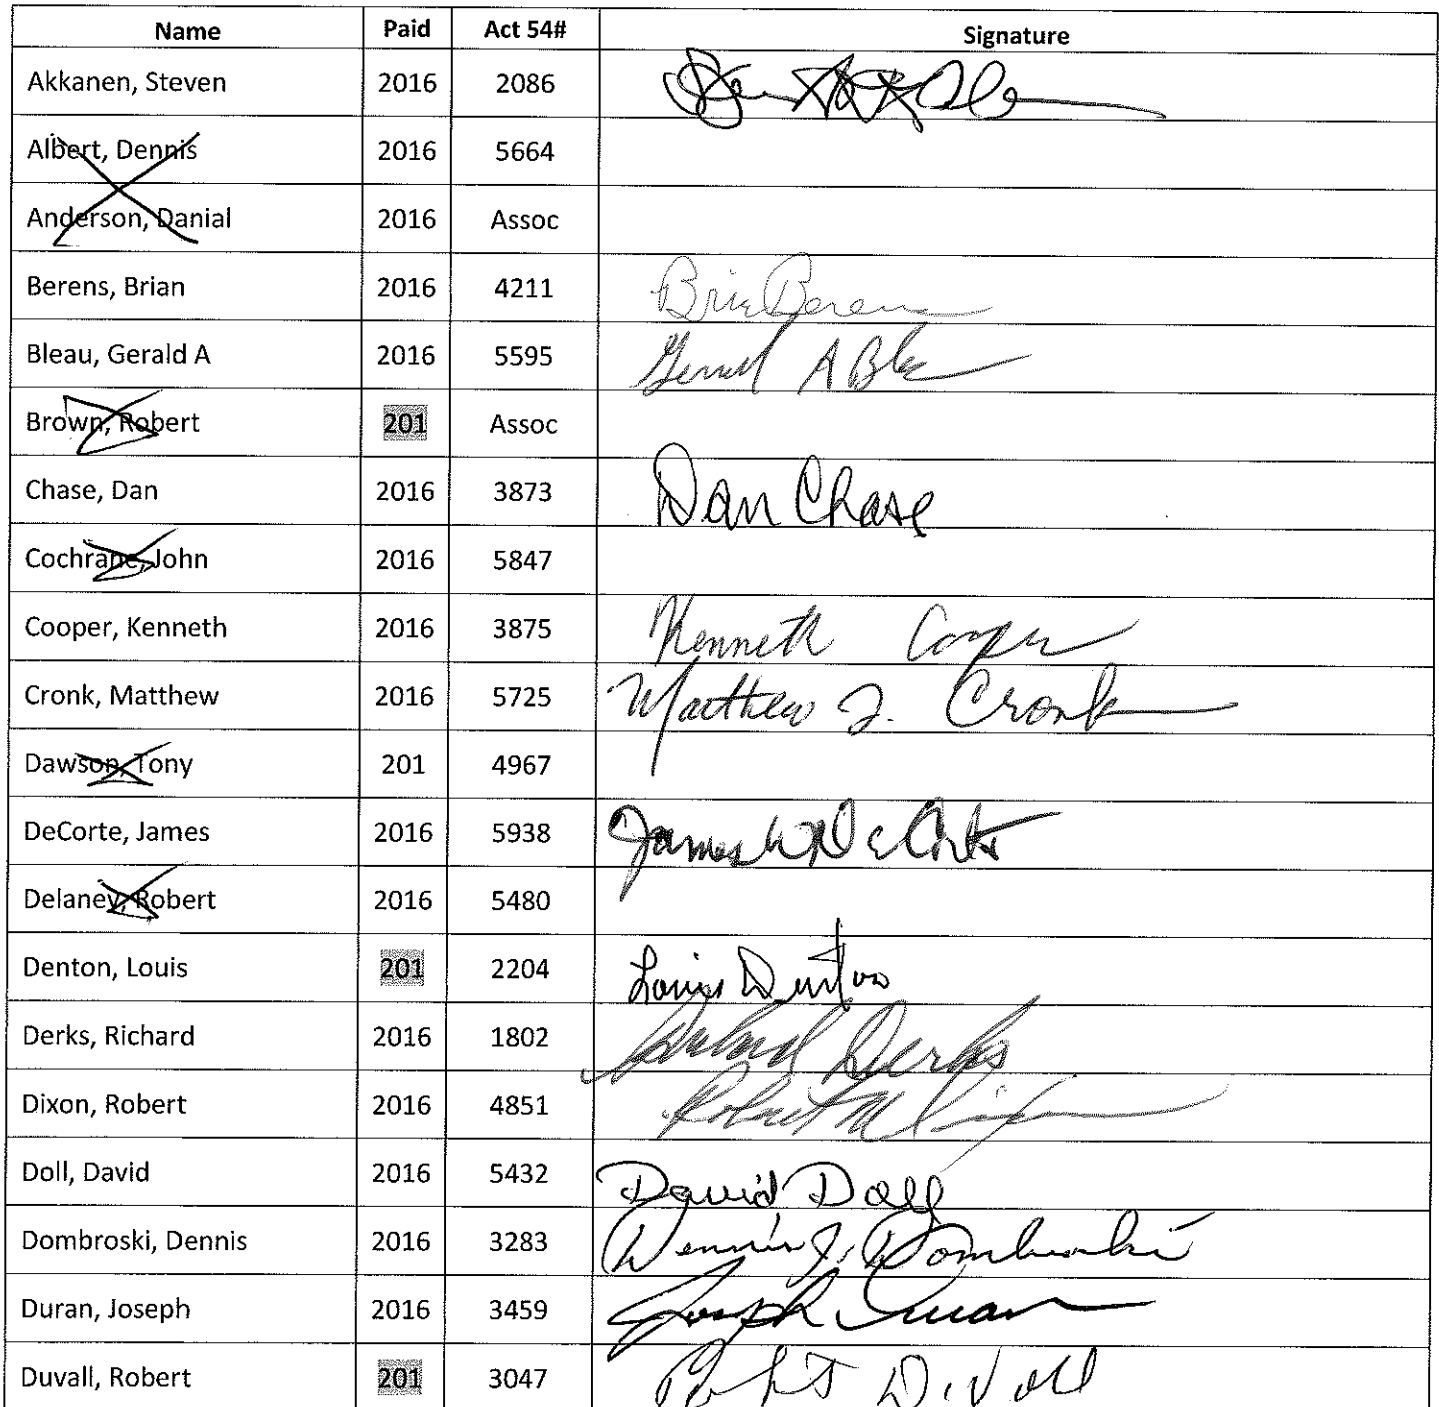 Name Paid Act 54# Signature
Akkanen, Steven 2016 2086
Albert, Dennis 2016 5664
Anderson, Danial 2016 Assoc
Berens, Brian 2016 4211 Brian Berens
Bleau, Gerald A 2016 5595 Gerald A Bleau
Brown, Robert 201 Assoc
Chase, Dan 2016 3873 Dan Chase
Cochrane, John 2016 5847
Cooper, Kenneth 2016 3875 Kenneth Cooper
Cronk, Matthew 2016 5725 Matthew J. Cronk
Dawson, Tony 201 4967
DeCorte, James 2016 5938 James W DeCorte
Delaney, Robert 2016 5480
Denton, Louis 201 2204 Louis Denton
Derks, Richard 2016 1802 Richard Derks
Dixon, Robert 2016 4851 Robert M Dixon
Doll, David 2016 5432 David Doll
Dombroski, Dennis 2016 3283 Dennis J. Dombroski
Duran, Joseph 2016 3459 Joseph Duran
Duvall, Robert 201 3047 Robert Duvall